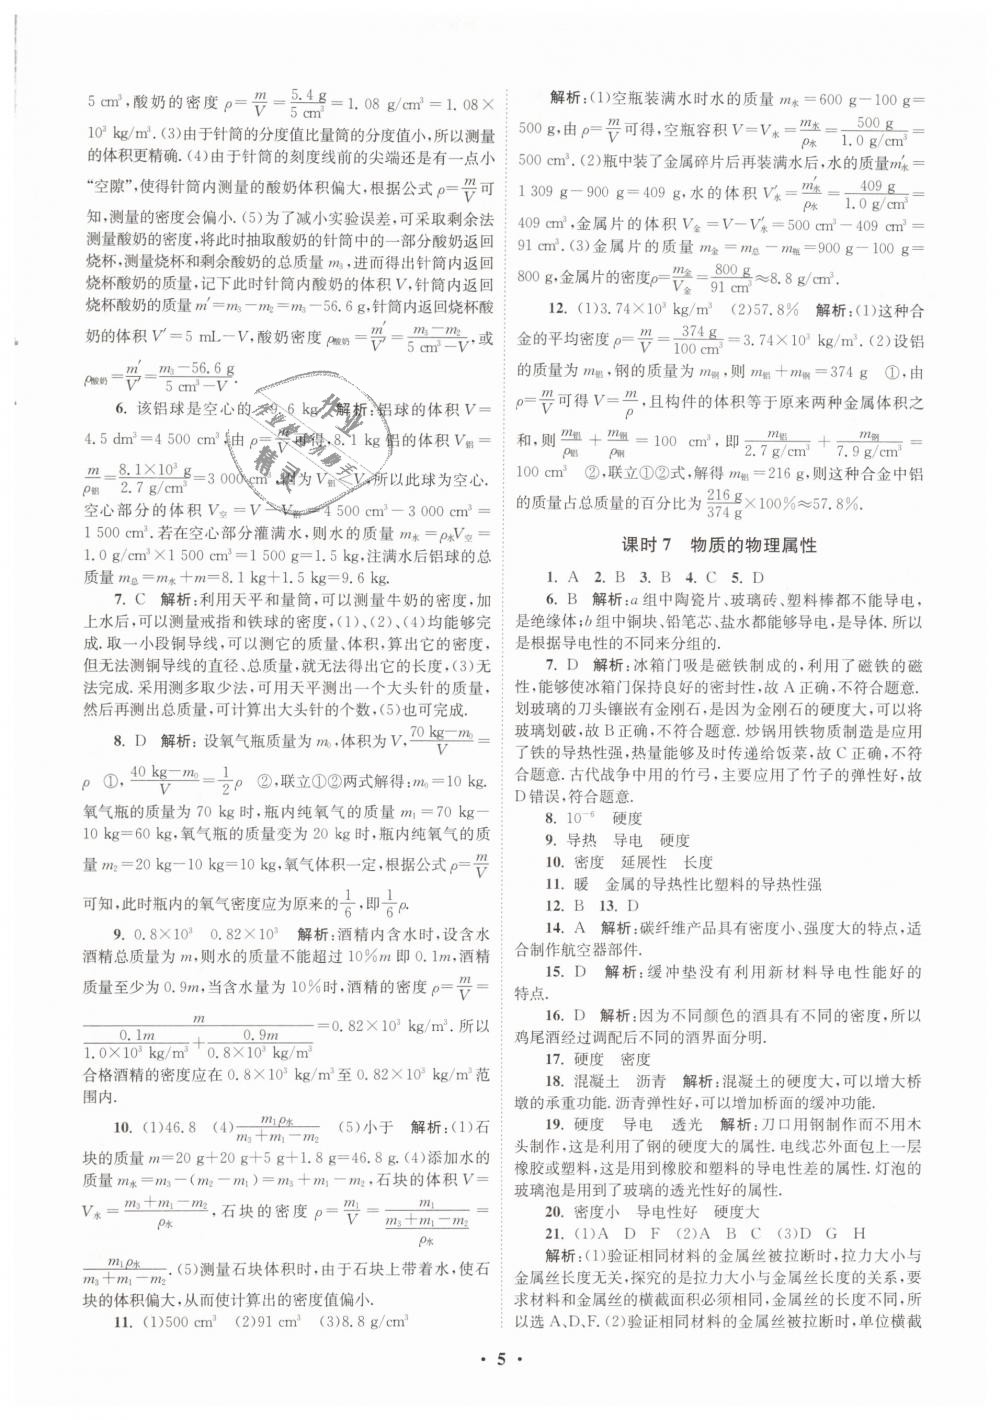 5 cm³,酸奶的密度 ρ=m/V=5.4 g/5 cm³=1.08 g/cm³=1.08×
10³ kg/m³.(3)由于针筒的分度值比量筒的分度值小,所以测量
的体积更精确.(4)由于针筒的刻度线前的尖端还是有一点小
“空隙”,使得针筒内测量的酸奶体积偏大,根据公式 ρ=m/V可
知,测量的密度会偏小.(5)为了减小实验误差,可采取剩余法
测量酸奶的密度,将此时抽取酸奶的针筒中的一部分酸奶返回
烧杯,测量烧杯和剩余酸奶的总质量 m₃,进而得出针筒内返回
烧杯酸奶的质量,记下此时针筒内酸奶的体积 V,针筒内返回
烧杯酸奶的质量 m′=m₃-m₂=m₃-56.6 g,针筒内返回烧杯酸
奶的体积 V′=5 mL-V,酸奶密度 ρ酸奶=m′/V′=(m₃-m₂)/(5 cm³-V),或
ρ酸奶=m′/V′=(m₃-56.6 g)/(5 cm³-V).
6. 该铝球是空心的 9.6 kg 解析:铝球的体积 V=
4.5 dm³=4 500 cm³,由 ρ=m/V可得,8.1 kg 铝的体积 V铝=
m/ρ铝=8.1×10³ g/2.7 g/cm³=3 000 cm³,因为 V铝<V,所以此球为空心.
空心部分的体积 V空=V-V铝=4 500 cm³-3 000 cm³=
1 500 cm³.若在空心部分灌满水,则水的质量 m水=ρ水V空=
1.0 g/cm³×1 500 cm³=1 500 g=1.5 kg,注满水后铝球的总
质量 m总=m水+m=8.1 kg+1.5 kg=9.6 kg.
7. C 解析:利用天平和量筒,可以测量牛奶的密度,加
上水后,可以测量戒指和铁球的密度,(1)、(2)、(4)均能够完
成.取一小段铜导线,可以测它的质量、体积,算出它的密度,
但无法测铜导线的直径、总质量,就无法得出它的长度,(3)无
法完成.采用测多取少法,可用天平测出一个大头针的质量,
然后再测出总质量,可计算出大头针的个数,(5)也可完成.
8. D 解析:设氧气瓶质量为 m₀,体积为 V,(70 kg-m₀)/V=
ρ ①,(40 kg-m₀)/V=1/2ρ ②,联立①②两式解得:m₀=10 kg.
氧气瓶的质量为 70 kg 时,瓶内纯氧气的质量 m₁=70 kg-
10 kg=60 kg,氧气瓶的质量变为 20 kg 时,瓶内纯氧气的质
量 m₂=20 kg-10 kg=10 kg,氧气体积一定,根据公式 ρ=m/V
可知,此时瓶内的氧气密度应为原来的1/6,即1/6ρ.
9. 0.8×10³ 0.82×10³ 解析:酒精内含水时,设含水
酒精总质量为 m,则水的质量不能超过 10%m 即 0.1m,酒精
质量至少为 0.9m,当含水量为 10%时,酒精的密度 ρ=m/V=
m/(0.1m/(1.0×10³ kg/m³)+0.9m/(0.8×10³ kg/m³))=0.82×10³ kg/m³.所以
合格酒精的密度应在 0.8×10³ kg/m³至 0.82×10³ kg/m³范
围内.
10. (1)46.8 (4)m₁ρ水/(m₃+m₁-m₂) (5)小于 解析:(1)石
块的质量 m=20 g+20 g+5 g+1.8 g=46.8 g.(4)添加水的
质量 m水=m₃-(m₂-m₁)=m₃+m₁-m₂,石块的体积 V=
V水=(m₃+m₁-m₂)/ρ水,石块的密度 ρ=m₁/V=m₁/((m₃+m₁-m₂)/ρ水)=
m₁ρ水/(m₃+m₁-m₂).(5)测量石块体积时,由于石块上带着水,使石
块的体积偏大,从而使计算出的密度值偏小.
11. (1)500 cm³ (2)91 cm³ (3)8.8 g/cm³
解析:(1)空瓶装满水时水的质量 m水=600 g-100 g=
500 g,由 ρ=m/V可得,空瓶容积 V=V水=m水/ρ水=500 g/1.0 g/cm³=
500 cm³.(2)瓶中装了金属碎片后再装满水后,水的质量m′水=
1 309 g-900 g=409 g,水的体积 V′水=m′水/ρ水=409 g/1.0 g/cm³=
409 cm³,金属片的体积 V金=V-V′水=500 cm³-409 cm³=
91 cm³.(3)金属片的质量 m金=m总-m瓶=900 g-100 g=
800 g,金属片的密度ρ=m金/V金=800 g/91 cm³≈8.8 g/cm³.
12. (1)3.74×10³ kg/m³ (2)57.8% 解析:(1)这种合
金的平均密度 ρ=m/V=374 g/100 cm³=3.74×10³ kg/m³.(2)设铝
的质量为 m铝,钢的质量为 m钢,则 m铝+m钢=374 g ①,由
ρ=m/V可得 V=m/ρ,且构件的体积等于原来两种金属体积之
和,则 m铝/ρ铝+m钢/ρ钢=100 cm³,即 m铝/2.7 g/cm³+m钢/7.9 g/cm³=
100 cm³ ②,联立①②式,解得 m铝=216 g,则这种合金中铝
的质量占总质量的百分比为216 g/374 g×100%≈57.8%.
课时 7 物质的物理属性
1. A 2. B 3. B 4. C 5. D
6. B 解析:a 组中陶瓷片、玻璃砖、塑料棒都不能导电,
是绝缘体;b 组中铜块、铅笔芯、盐水都能够导电,是导体.所以
是根据导电性的不同来分组的.
7. D 解析:冰箱门吸是磁铁制成的,利用了磁铁的磁
性,能够使冰箱门保持良好的密封性,故 A 正确,不符合题意.
划玻璃的刀头镶嵌有金刚石,是因为金刚石的硬度大,可以将
玻璃划破,故 B 正确,不符合题意.炒锅用铁物质制造是应用
了铁的导热性强,热量能够及时传递给饭菜,故 C 正确,不符
合题意.古代战争中用的竹弓,主要应用了竹子的弹性好,故
D 错误,符合题意.
8. 10⁻⁶ 硬度
9. 导热 导电 硬度
10. 密度 延展性 长度
11. 暖 金属的导热性比塑料的导热性强
12. B 13. D
14. A 解析:碳纤维产品具有密度小、强度大的特点,适
合制作航空器部件.
15. D 解析:缓冲垫没有利用新材料导电性能好的
特点.
16. D 解析:因为不同颜色的酒具有不同的密度,所以
鸡尾酒经过调配后不同的酒界面分明.
17. 硬度 密度
18. 混凝土 沥青 解析:混凝土的硬度大,可以增大桥
墩的承重功能.沥青弹性好,可以增加桥面的缓冲功能.
19. 硬度 导电 透光 解析:刀口用钢制作而不用木
头制作,这是利用了钢的硬度大的属性.电线芯外面包上一层
橡胶或塑料,这是用到橡胶和塑料的导电性差的属性.灯泡的
玻璃泡是用到了玻璃的透光性好的属性.
20. 密度小 导电性好 硬度大
21. (1)A D F (2)A B C (3)D G H
解析:(1)验证相同材料的金属丝被拉断时,拉力大小与
金属丝长度无关,探究的是拉力大小与金属丝长度的关系,要
求材料和金属丝的横截面积必须相同,金属丝的长度不同,所
以选 A、D、F.(2)验证相同材料的金属丝被拉断时,单位横截
• 5 •
作业
作业检查小助手
精灵